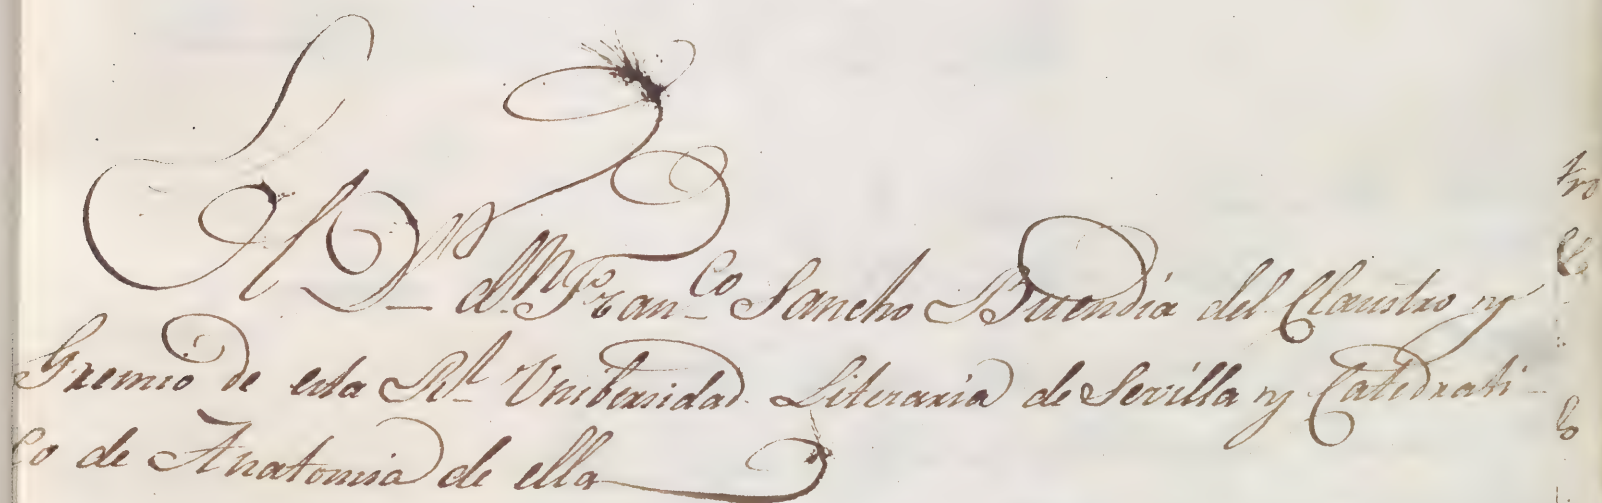 El Dr. dn. Franco. Sancho Buendia del Claustro y
Gremio de esta Rl. Vnibersidad Literaria de Sevilla y Catedrati-
co de Anatomia de ella